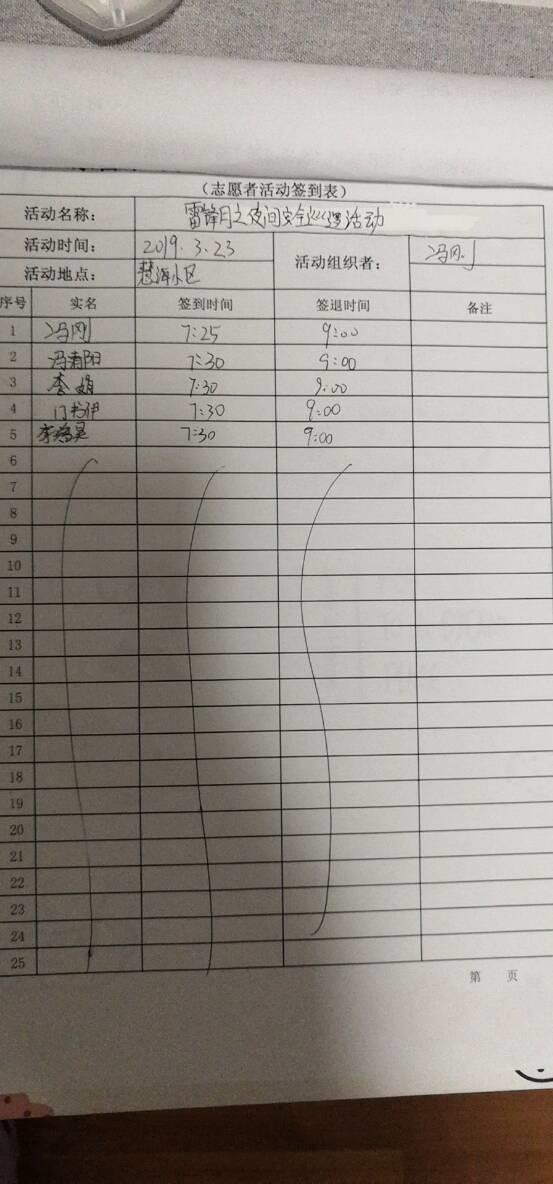 （志愿者活动签到表）
活动名称： 雷锋月之夜间安全巡逻活动
活动时间： 2019.3.23 活动组织者： 冯刚
活动地点： 慧海小区
序号 实名 签到时间 签退时间 备注
1 冯刚 7:25 9:00
2 冯春阳 7:30 9:00
3 李娟 7:30 9:00
4 门书伊 7:30 9:00
5 7:30 9:00
6
7
8
9
10
11
12
13
14
15
16
17
18
19
20
21
22
23
24
25
第 页